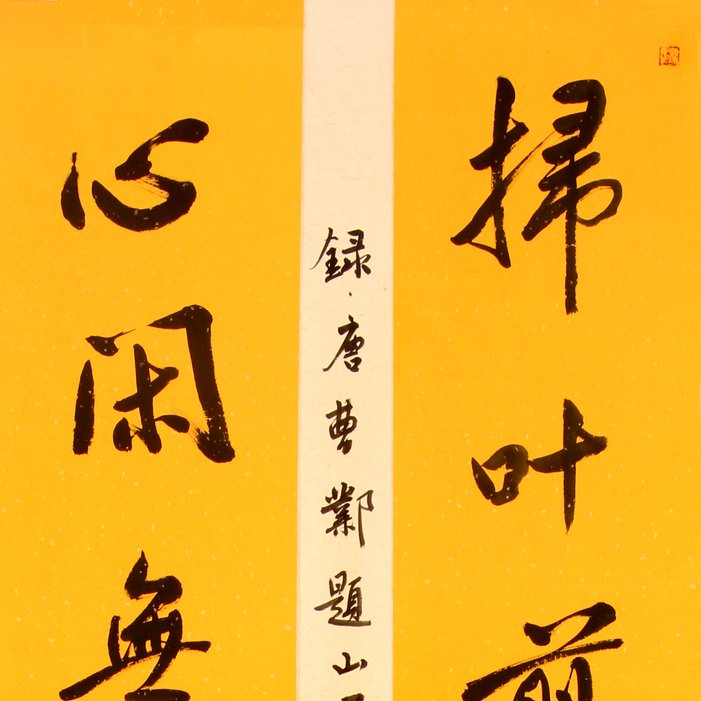 掃叶煎
録唐曹鄴題山
心闲無